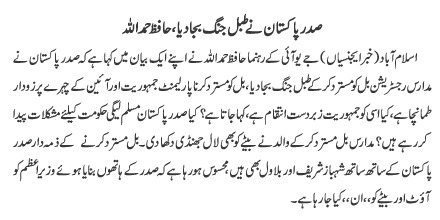 صدر پاکستان نے طبل جنگ بجا دیا، حافظ حمد اللہ
اسلام آباد (خبر ایجنسیاں) جے یو آئی کے رہنما حافظ حمد اللہ نے اپنے ایک بیان میں کہا ہے کہ صدر پاکستان نے
مدارس رجسٹریشن بل کو مسترد کر کے طبل جنگ بجا دیا، بل کو مسترد کرنا پارلیمنٹ جمہوریت اور آئین کے چہرے پر زوردار
طمانچا ہے، کیا اسی کو جمہوریت زبردست انتقام ہے، کہا جاتا ہے؟ کیا صدر پاکستان مسلم لیگی حکومت کیلئے مشکلات پیدا
کر رہے ہیں؟ مدارس بل مسترد کر کے والد نے بیٹے کو بھی لال جھنڈی دکھا دی۔ بل مسترد کرنے کے ذمہ دار صدر
پاکستان کے ساتھ ساتھ شہباز شریف اور بلاول بھی ہیں، محسوس ہو رہا ہے کہ صدر کے ہاتھوں بنایا ہوئے وزیر اعظم کو
آؤٹ اور بیٹے کو،،ان،، کیا جا رہا ہے۔